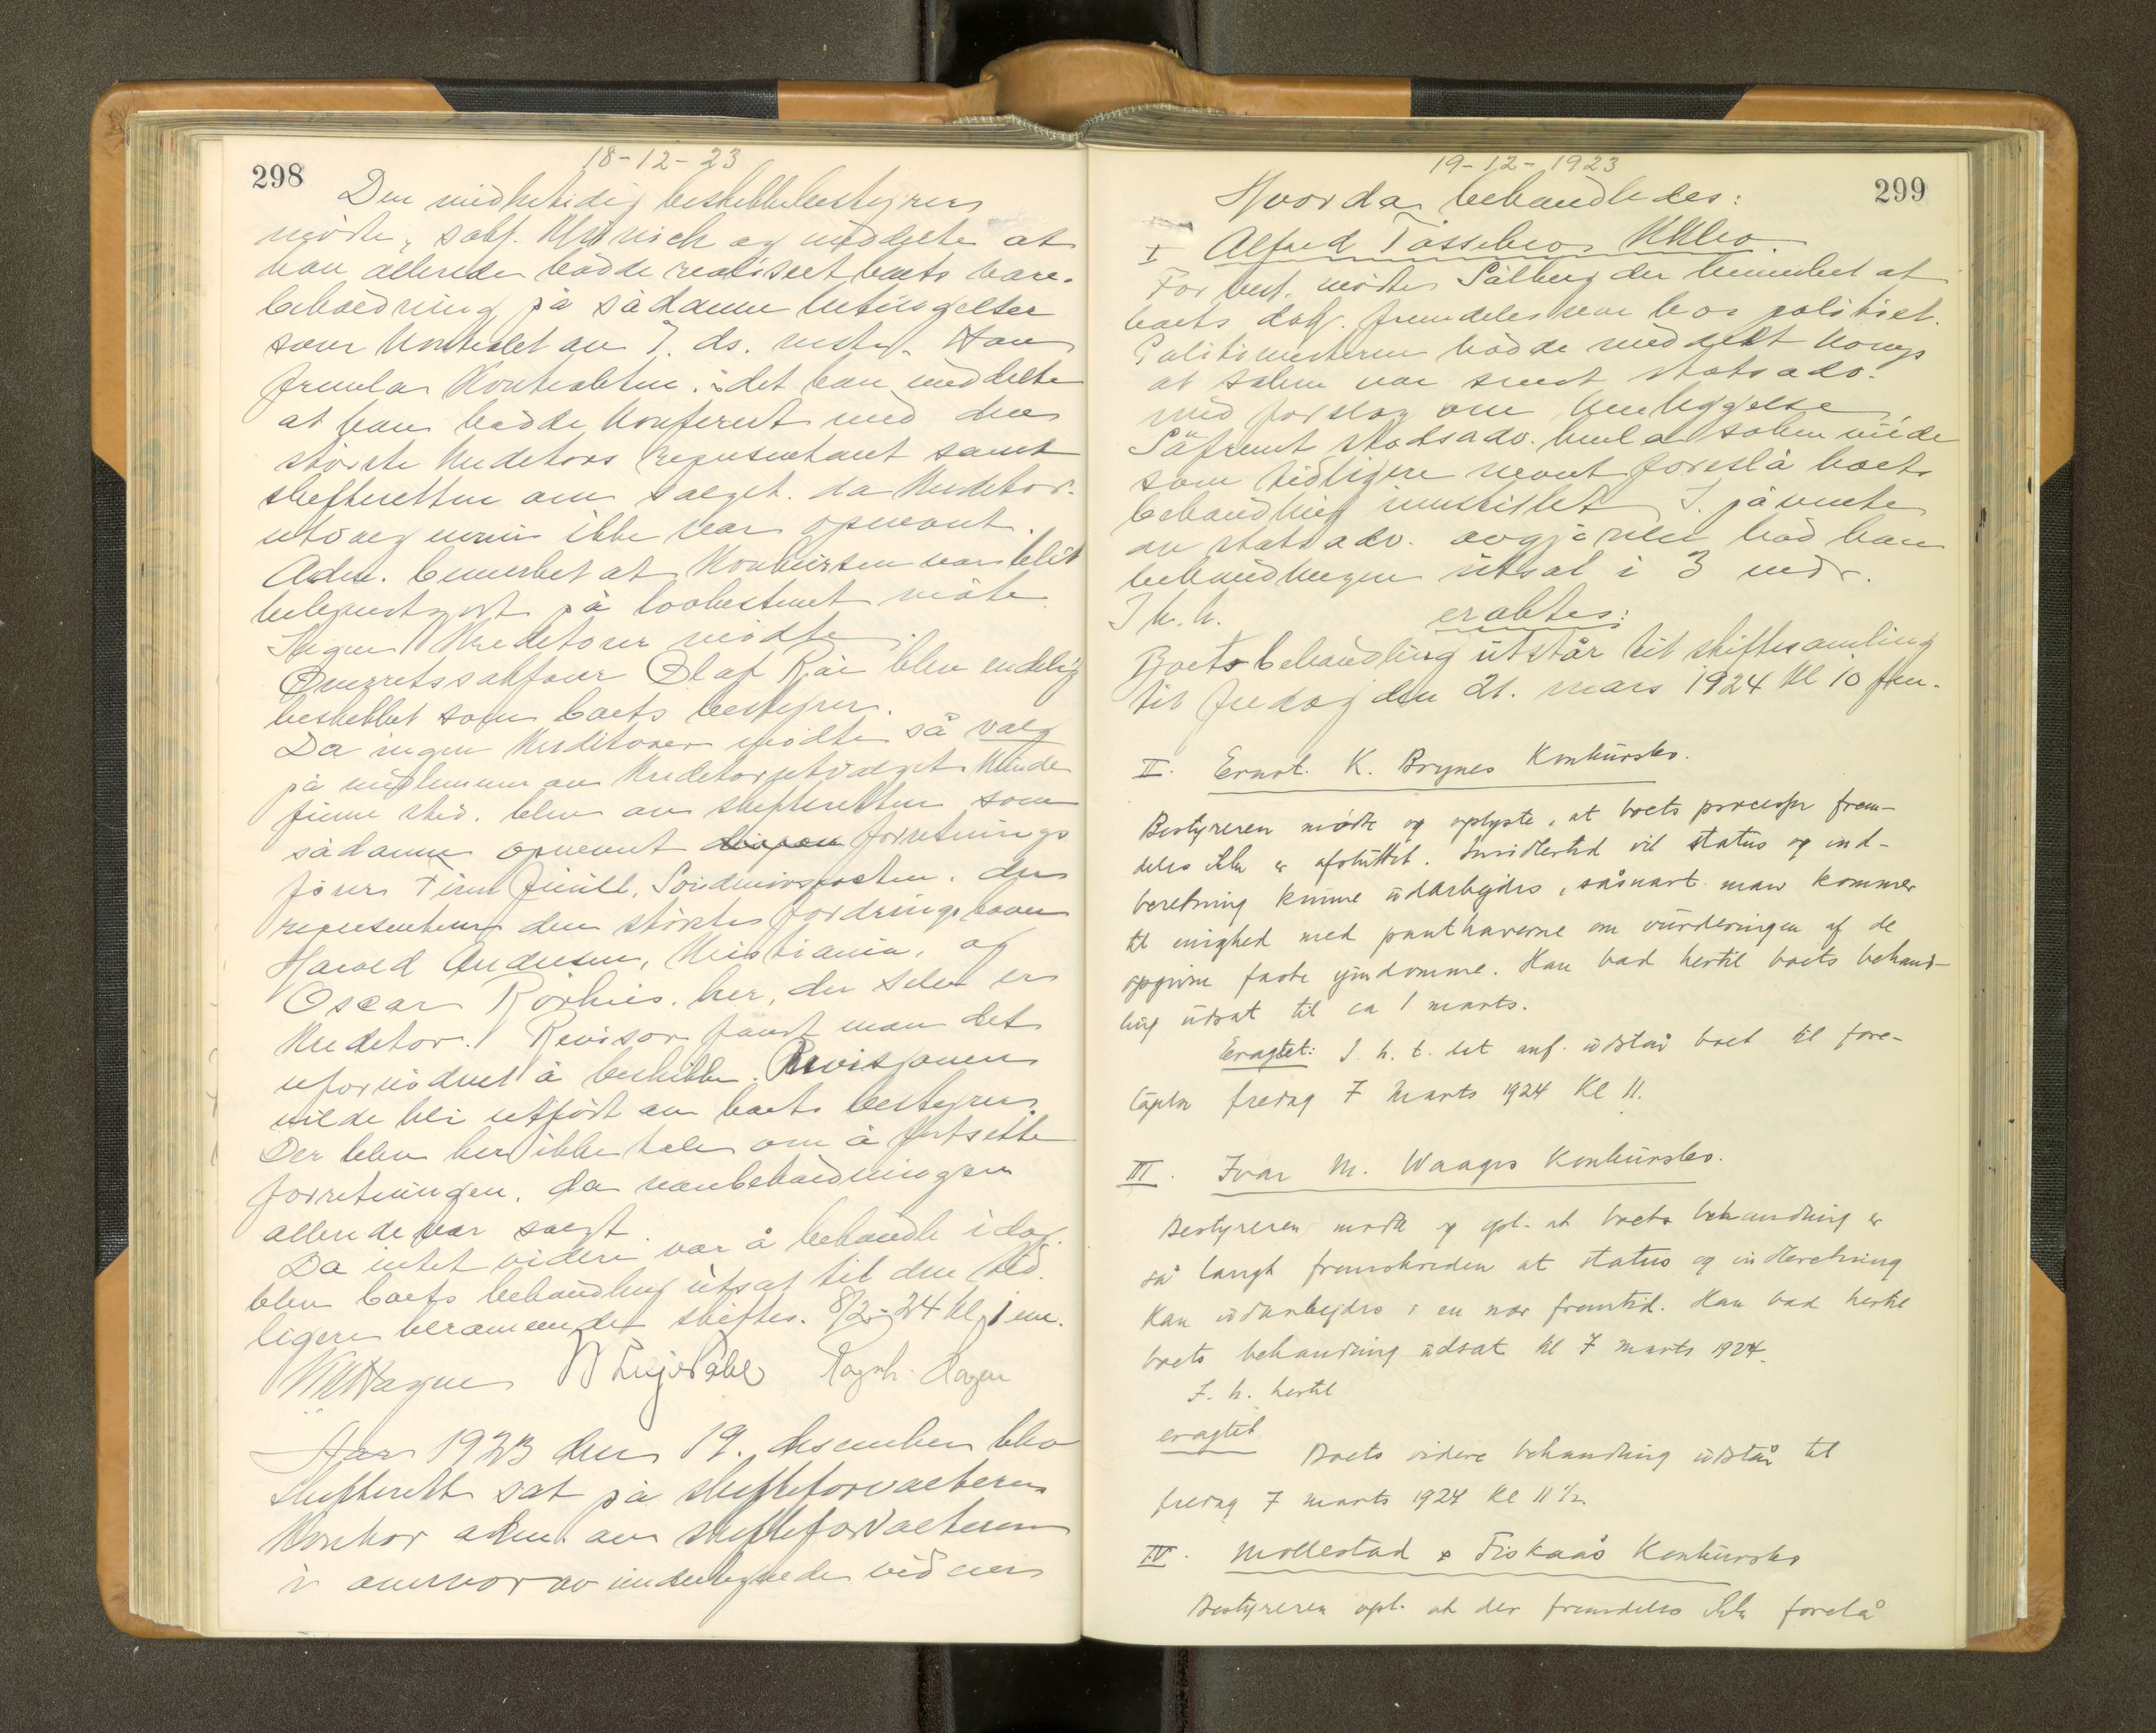 298
18-12-23
Den midlertidig beskikkede bestyrer
møtte, sakf. og meddelte at
han allerede hadde realiseret boets vare-
beholdning på sådanne betingelser
som kontrakt av 7. ds. viste. Han
fremla kontrakten, idet han meddelte
at han hadde konferert med den
største kreditors representant samt
skifteretten om salget, da kreditor-
utvalg ennu ikke var opnevnt.
Adm. bemerket at konkursen var blit
bekjentgjort på lovbestemt måte
Ingen kreditorer møtte.
Overretssakfører Olaf Røe blev endelig
beskikket som boets bestyrer.
Da ingen kreditorer møtte så valg
på medlemmer av kreditorutvalget kunde
finne sted, blev av skifteretten som
sådanne opnevnt forretnings
fører Finn, Søndmørsposten, der
representerer den største fordringshaver
Harald Andersen, Kristiania, og
Oscar her, der selv er
kreditor. Revisor fandt man det
ufornødent å beskikke. Revisjonen
vilde bli utført av boets bestyrer.
Der blev her ikke tale om å fortsette
forretningen, da varebeholdningen
allerede var solgt.
Da intet videre var å behandle idag
blev boets behandling utsat til den tid
ligere berammede skiftes. 8/2-24 kl. 1 em.
Ragnh. Hagen
Aar 1923 den 19. desember blev
skifterett sat på skifteforvalterens
kontor adm. av skifteforvalteren
i nærvær av undertegnede vidner
19-12-1923
299
Hvorda behandledes:
I Alfred Tåssebros Kkbo.
For best. møtte Sålberg der bemerket at
boets dok. fremdeles var hos politiet.
Politimesteren hadde meddelt
at saken var sendt statsadv.
med forslag om henleggelse.
Såfremt statsadv. henla saken vilde
som tidligere nevnt foreslå boets
behandling innstillet. I påvente
av statsadv. avgjørelse bad han
behandlingen utsat i 3 mdr.
I h. h. eraktes:
Boets behandling utstår til skiftesamling
til fredag den 21. mars 1924 kl 10 fm.
II. Ernst K. Brynes Konkursbo.
Bestyreren mødte og oplyste, at boets processer frem-
deles ikke er afsluttet. Imidlertid vil status og ind-
beretning kunne udarbejdes, såsnart man kommer
til enighed med panthaverne om vurderingen af de
opgivne faste ejendomme. Han bad hertil boets behand-
ling udsat til ca 1 marts.
Eragtet: I. h. t. det anf. udstår boet til fore-
tagelse fredag 7 Marts 1924 Kl 11.
III. Ivar M. Waages Konkursbo.
Bestyreren mødte og opl. at boets behandling er
så langt fremskreden at status og indberetning
kan udarbejdes i en nær fremtid. Han bad hertil
boets behandling udsat til 7 marts 1924.
I. h. hertil
eragtet
Boets videre behandling udstår til
fredag 7 marts 1924 Kl 11 1/2
IV. Mollestad & Fiskaas Konkursbo
Bestyreren opl. at der fremdeles ikke forelå